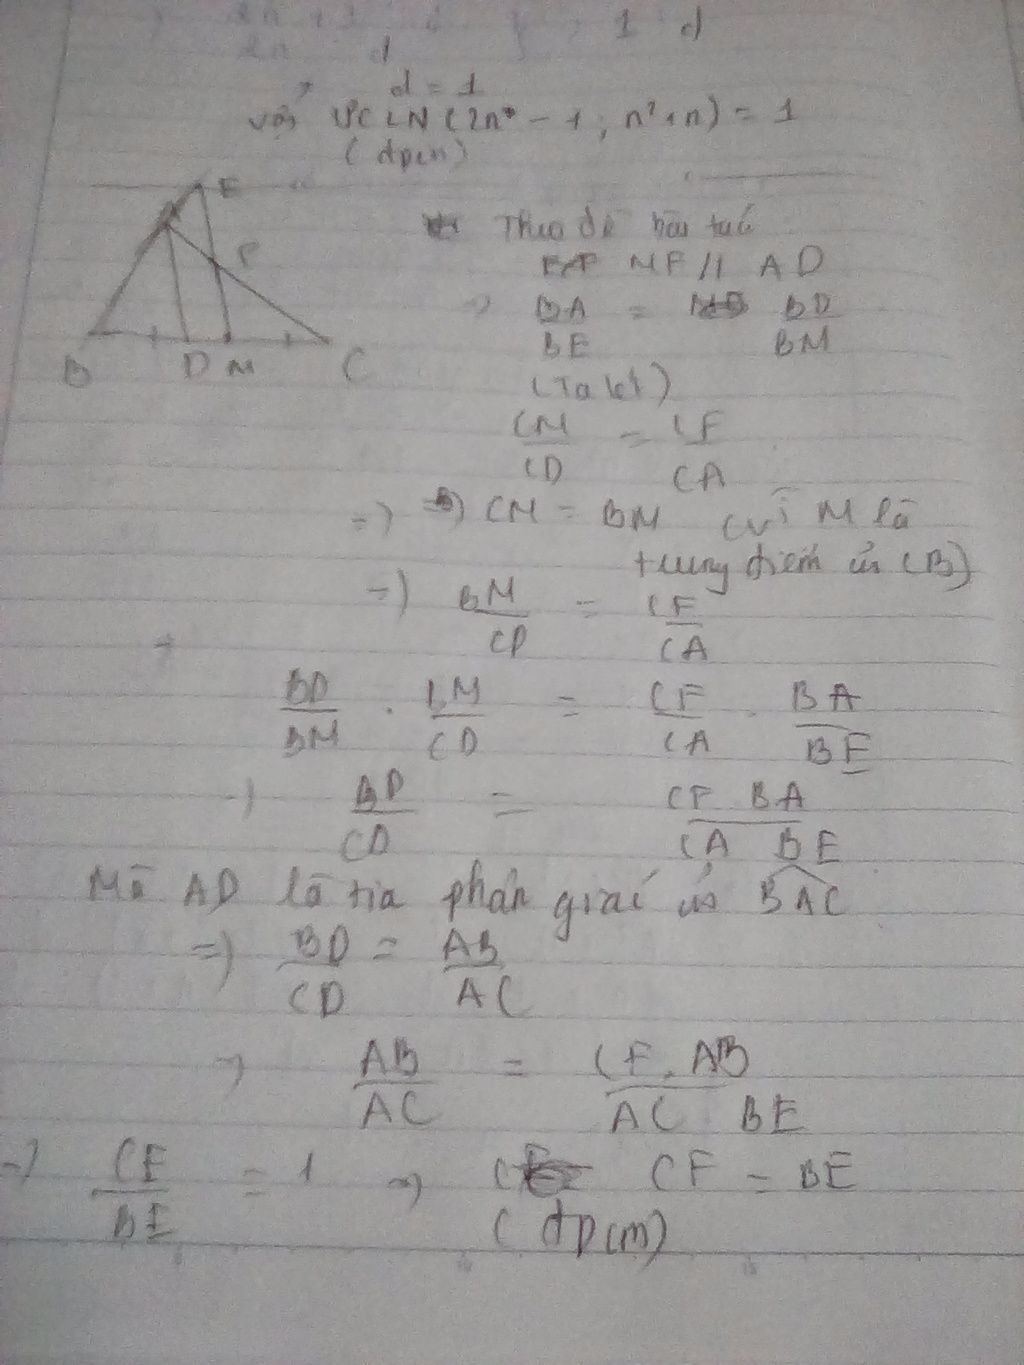 d
1 d
d = 1
vậy ƯCLN (2n² - 1; n² + n) = 1
(đpcm)
E
F
B D M C
Theo đề bài ta có
MF // AD
=> BA = BD
BE BM
(Ta lét)
CM = CF
CD CA
=> CM = BM (vì M là
trung điểm của CB)
=> BM = CF
CD CA
BD . BM = CF . BA
BM CD CA BE
=> BD = CF BA
CD CA BE
Mà AD là tia phân giác của BAC
=> BD = AB
CD AC
=> AB = CF . AB
AC AC BE
=> CF = 1 => CF = BE
BE (đpcm)